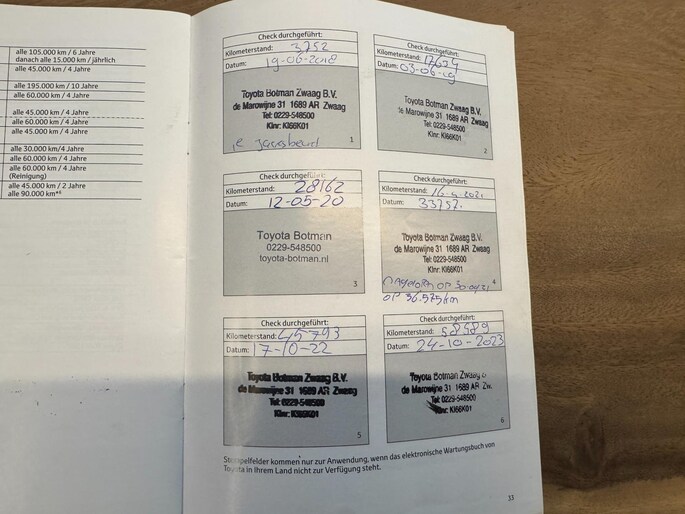 alle 105.000 km / 6 Jahre
danach alle 15.000 km / jährlich
alle 45.000 km / 4 Jahre
alle 195.000 km / 10 Jahre
alle 60.000 km / 4 Jahre
alle 45.000 km / 4 Jahre
alle 60.000 km / 4 Jahre
alle 45.000 km / 4 Jahre
alle 30.000 km/4 Jahre
alle 60.000 km / 4 Jahre
alle 60.000 km / 4 Jahre
(Reinigung)
alle 45.000 km / 2 Jahre
alle 90.000 km*⁶
Check durchgeführt:
Kilometerstand: 3752
Datum: 19-06-2018
Toyota Botman Zwaag B.V.
de Marowijne 31 1689 AR Zwaag
Tel: 0229-548500
Klnr: KI66K01
1e Jaarsbeurt
1
Check durchgeführt:
Kilometerstand: 17634
Datum: 03-06-19
Toyota Botman Zwaag B.V.
de Marowijne 31 1689 AR Zwaag
Tel: 0229-548500
Klnr: KI66K01
2
Check durchgeführt:
Kilometerstand: 28162
Datum: 12-05-20
Toyota Botman
0229-548500
toyota-botman.nl
3
Check durchgeführt:
Kilometerstand: 16-4-2021
Datum: 33752.
Toyota Botman Zwaag B.V.
de Marowijne 31 1689 AR Zwaag
Tel: 0229-548500
Klnr: KI66K01
OP
4
OP 36.575 km
Check durchgeführt:
Kilometerstand: 45793
Datum: 17-10-22
Toyota Botman Zwaag B.V.
de Marowijne 31 1689 AR Zwaag
Tel: 0229-548500
Klnr: KI66K01
5
Check durchgeführt:
Kilometerstand: 58589
Datum: 24-10-2023
Toyota Botman Zwaag
de Marowijne 31 1689 AR Zw.
Tel: 0229-548500
Klnr: KI66K01
6
Stempelfelder kommen nur zur Anwendung, wenn das elektronische Wartungsbuch von
Toyota in Ihrem Land nicht zur Verfügung steht.
33